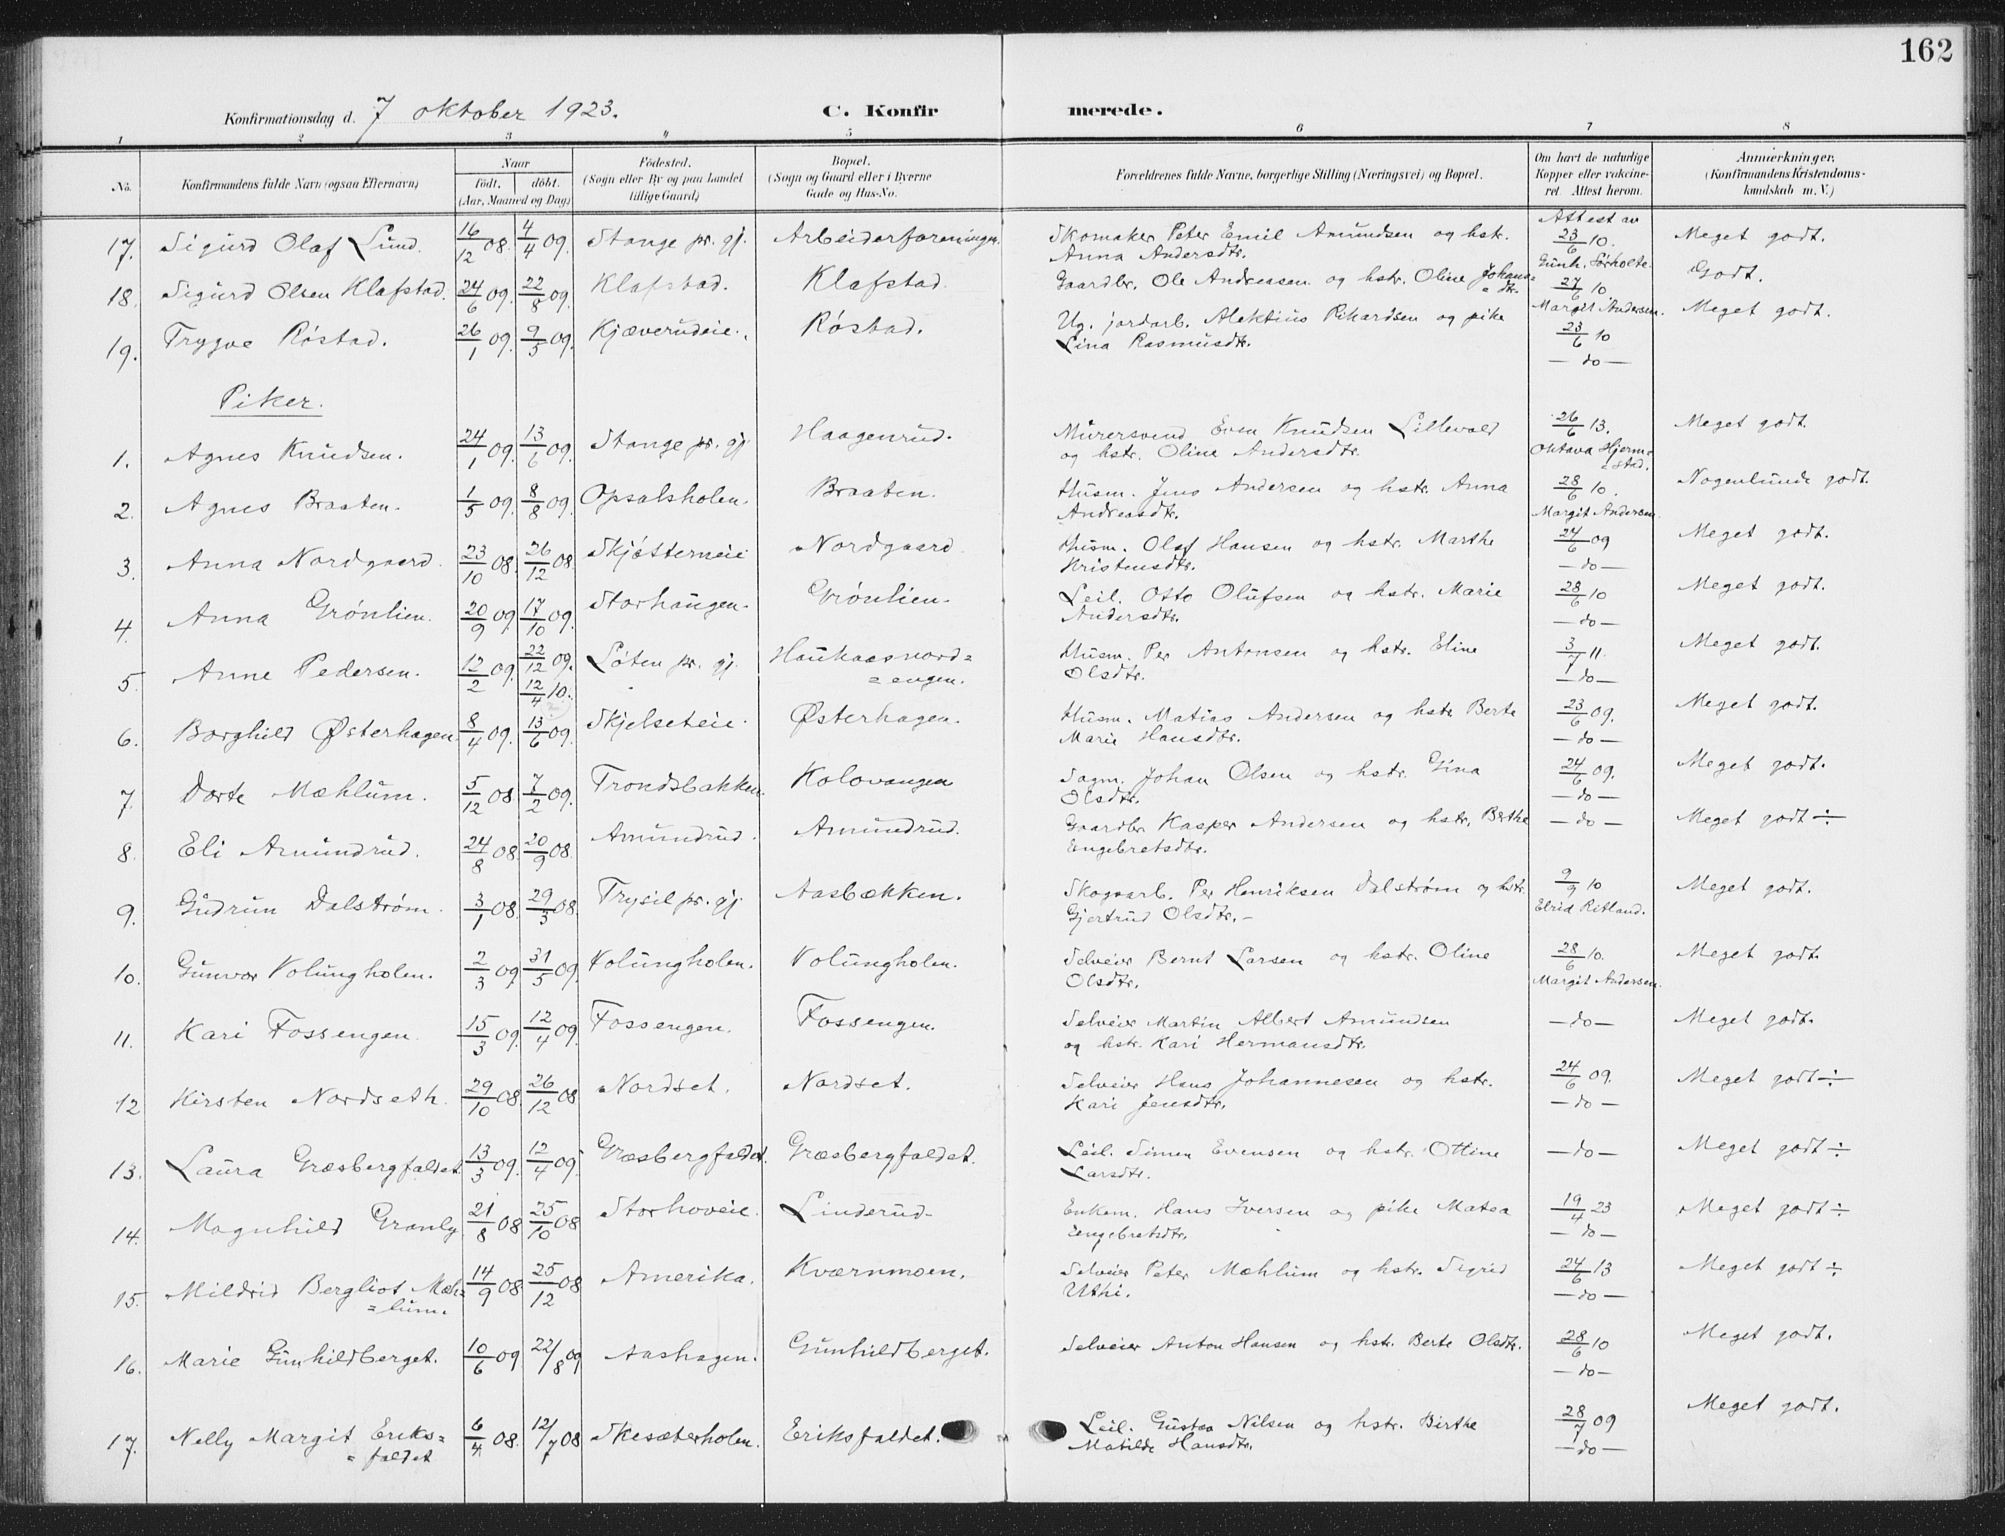 162
Konfirmationsdag d. 7 oktober 1923. C. Konfir merede.
1 2 3 4 5 6 7 8
No. Konfirmandens fulde Navn (ogsaa Efternavn) Naar födt, döbt. (Aar, Maaned og Dag) Födested. (Sogn eller By og paa Landet tillige Gaard) Bopæl. (Sogn og Gaard eller i Byerne Gade og Hus-No. Forældrenes fulde Navne, borgerlige Stilling (Næringsvei) og Bopæl. Om havt de naturlige Kopper eller vakcineret. Attest herom. Anmærkninger. (Konfirmandens Kristendomskundskab m. V.)
17. Sigurd Olaf Lund. 16/12 08. 4/4 09. Stange pr. gj. Arbeiderforeningen. Skomaker Peter Emil Amundsen og hstr. Anna Andersdtr. Attest av 23/6 10. Gunh. Sørholte Meget godt.
18. Sigurd Olsen Klafstad. 24/6 09. 22/8 09. Klafstad. Klafstad. Gaardbr. Ole Andreasen og hstr. Oline Johans=dtr. 27/6 10 Margit Andersen. Godt.
19. Trygve Røstad. 26/1 09. 9/5 09. Kjæverudeie. Røstad. Ug. jordarb. Alektius Rikardsen og pike Lina Rasmusdtr. 23/6 10 — do — Meget godt.
Piker.
1. Agnes Knudsen. 24/1 09. 13/6 09. Stange pr. gj. Haagenrud. Murersvend Even Knudsen Lillevold og hstr. Oline Andersdtr. 26/6 13. Oktava Hjerme=stad. Meget godt.
2. Agnes Braaten. 1/5 09. 8/8 09. Opsalsholen. Braaten. Husm. Jens Andersen og hstr. Anna Andreasdtr. 28/6 10. Margit Andersen. Nogenlunde godt.
3. Anna Nordgaard. 23/10 08. 26/12 08. Skjøtterneie Nordgaard. Husm. Olaf Hansen og hstr. Marthe Kristensdtr. 24/6 09 — do — Meget godt.
4. Anna Grønlien. 20/9 09. 17/10 09. Storhaugen. Grønlien. Leil. Otto Olufsen og hstr. Marie Andersdtr. 28/6 10 — do — Meget godt.
5. Anne Pedersen. 12/2 09. 22/12 09. 12/4 10. Løten pr. gj. Haukaasnord=engen. Husm. Per Antonsen og hstr. Eline Olsdtr. 3/7 11. — do — Meget godt.
6. Borghild Østerhagen. 8/4 09. 13/6 09. Skjelseteie. Østerhagen. Husm. Matias Andersen og hstr. Berte Marie Hansdtr. 23/6 09. — do — Meget godt.
7. Dorte Mæhlum. 5/12 08. 7/2 09. Trondsbakken. Kolovangen Sagm. Johan Olsen og hstr. Gina Olsdtr. 24/6 09. — do — Meget godt.
8. Eli Amundrud. 24/8 08. 20/9 08. Amundrud. Amundrud. Gaardbr. Kasper Andersen og hstr. Berthe Engebretsdtr. — do — Meget godt ÷
9. Gudrun Dalstrøm. 3/1 08. 29/3 08. Trysil pr. gj. Aasbækken. Skogsarb. Per Henriksen Dalstrøm og hstr. Gjertrud Olsdtr. — 9/9 10 Elrid Ritland. Meget godt.
10. Gunvor Kolungholen. 2/3 09. 31/5 09. Kolungholen. Kolungholen. Selveier Bernt Larsen og hstr. Oline Olsdtr. 28/6 10. Margit Andersen. Meget godt.
11. Kari Fossengen. 15/3 09. 12/4 09. Fossengen. Fossengen. Selveier Martin Albert Amundsen og hstr. Kari Hermansdtr. — do — Meget godt.
12 Kirsten Nordseth. 29/10 08. 26/12 08 Nordset. Nordset. Selveier Hans Johannesen og hstr. Kari Jensdtr. 24/6 09. — do — Meget godt ÷
13. Laura Græsbergfaldet. 13/3 09. 12/4 09. Græsbergfaldet. Græsbergfaldet. Leil. Simen Evensen og hstr. Ottine Larsdtr. — do — Meget godt ÷
14. Magnhild Granly 21/8 08 25/10 08 Storhoveie. Linderud. Enkem. Hans Iversen og pike Matea Engebretsdtr. 19/4 23 — do — Meget godt ÷
15. Mildrid Bergliot Mæh=lum. 14/9 08. 25/12 08 Amerika. Kværnmoen. Selveier Peter Mæhlum og hstr. Sigrid Uthi. 24/6 13 — do — Meget godt ÷
16. Marie Gunhildberget. 10/6 09. 22/8 09 Aashagen. Gunhildberget. Selveier Anton Hansen og hstr. Berte Olsdtr. 28/6 10 — do — Meget godt.
17. Nelly Margit Eriks=faldet 6/4 08. 12/7 08 Skesæterholen. Eriksfaldet. Leil. Gustav Nilsen og hstr. Birthe Matilde Hansdtr. 28/7 09 — do — Meget godt.